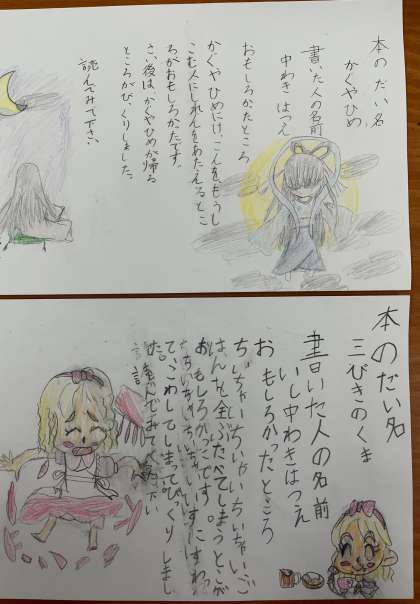 本のだい名
かくやひめ
書いた人の名前
中わき はつえ
おもしろかたところ
かぐやひめにけ,こんをもうし
こむ人にしれんをあたえるとこ
ろがおもしろかたです。
さい後は、かぐやひめが帰る
ところがび,くりしました。
読んでみて下さい
本のだい名
三びきのくま
書いた人の名前
いし中わきはつえ
おもしろかったところ
ちいちゃいちいちゃいちいちゃいご
はんを全ぶたべてしまうとこが
おもしろかっです。
いすにすわっ
て、こわしてしまってびっくりしまし
た。
読んでみて下い